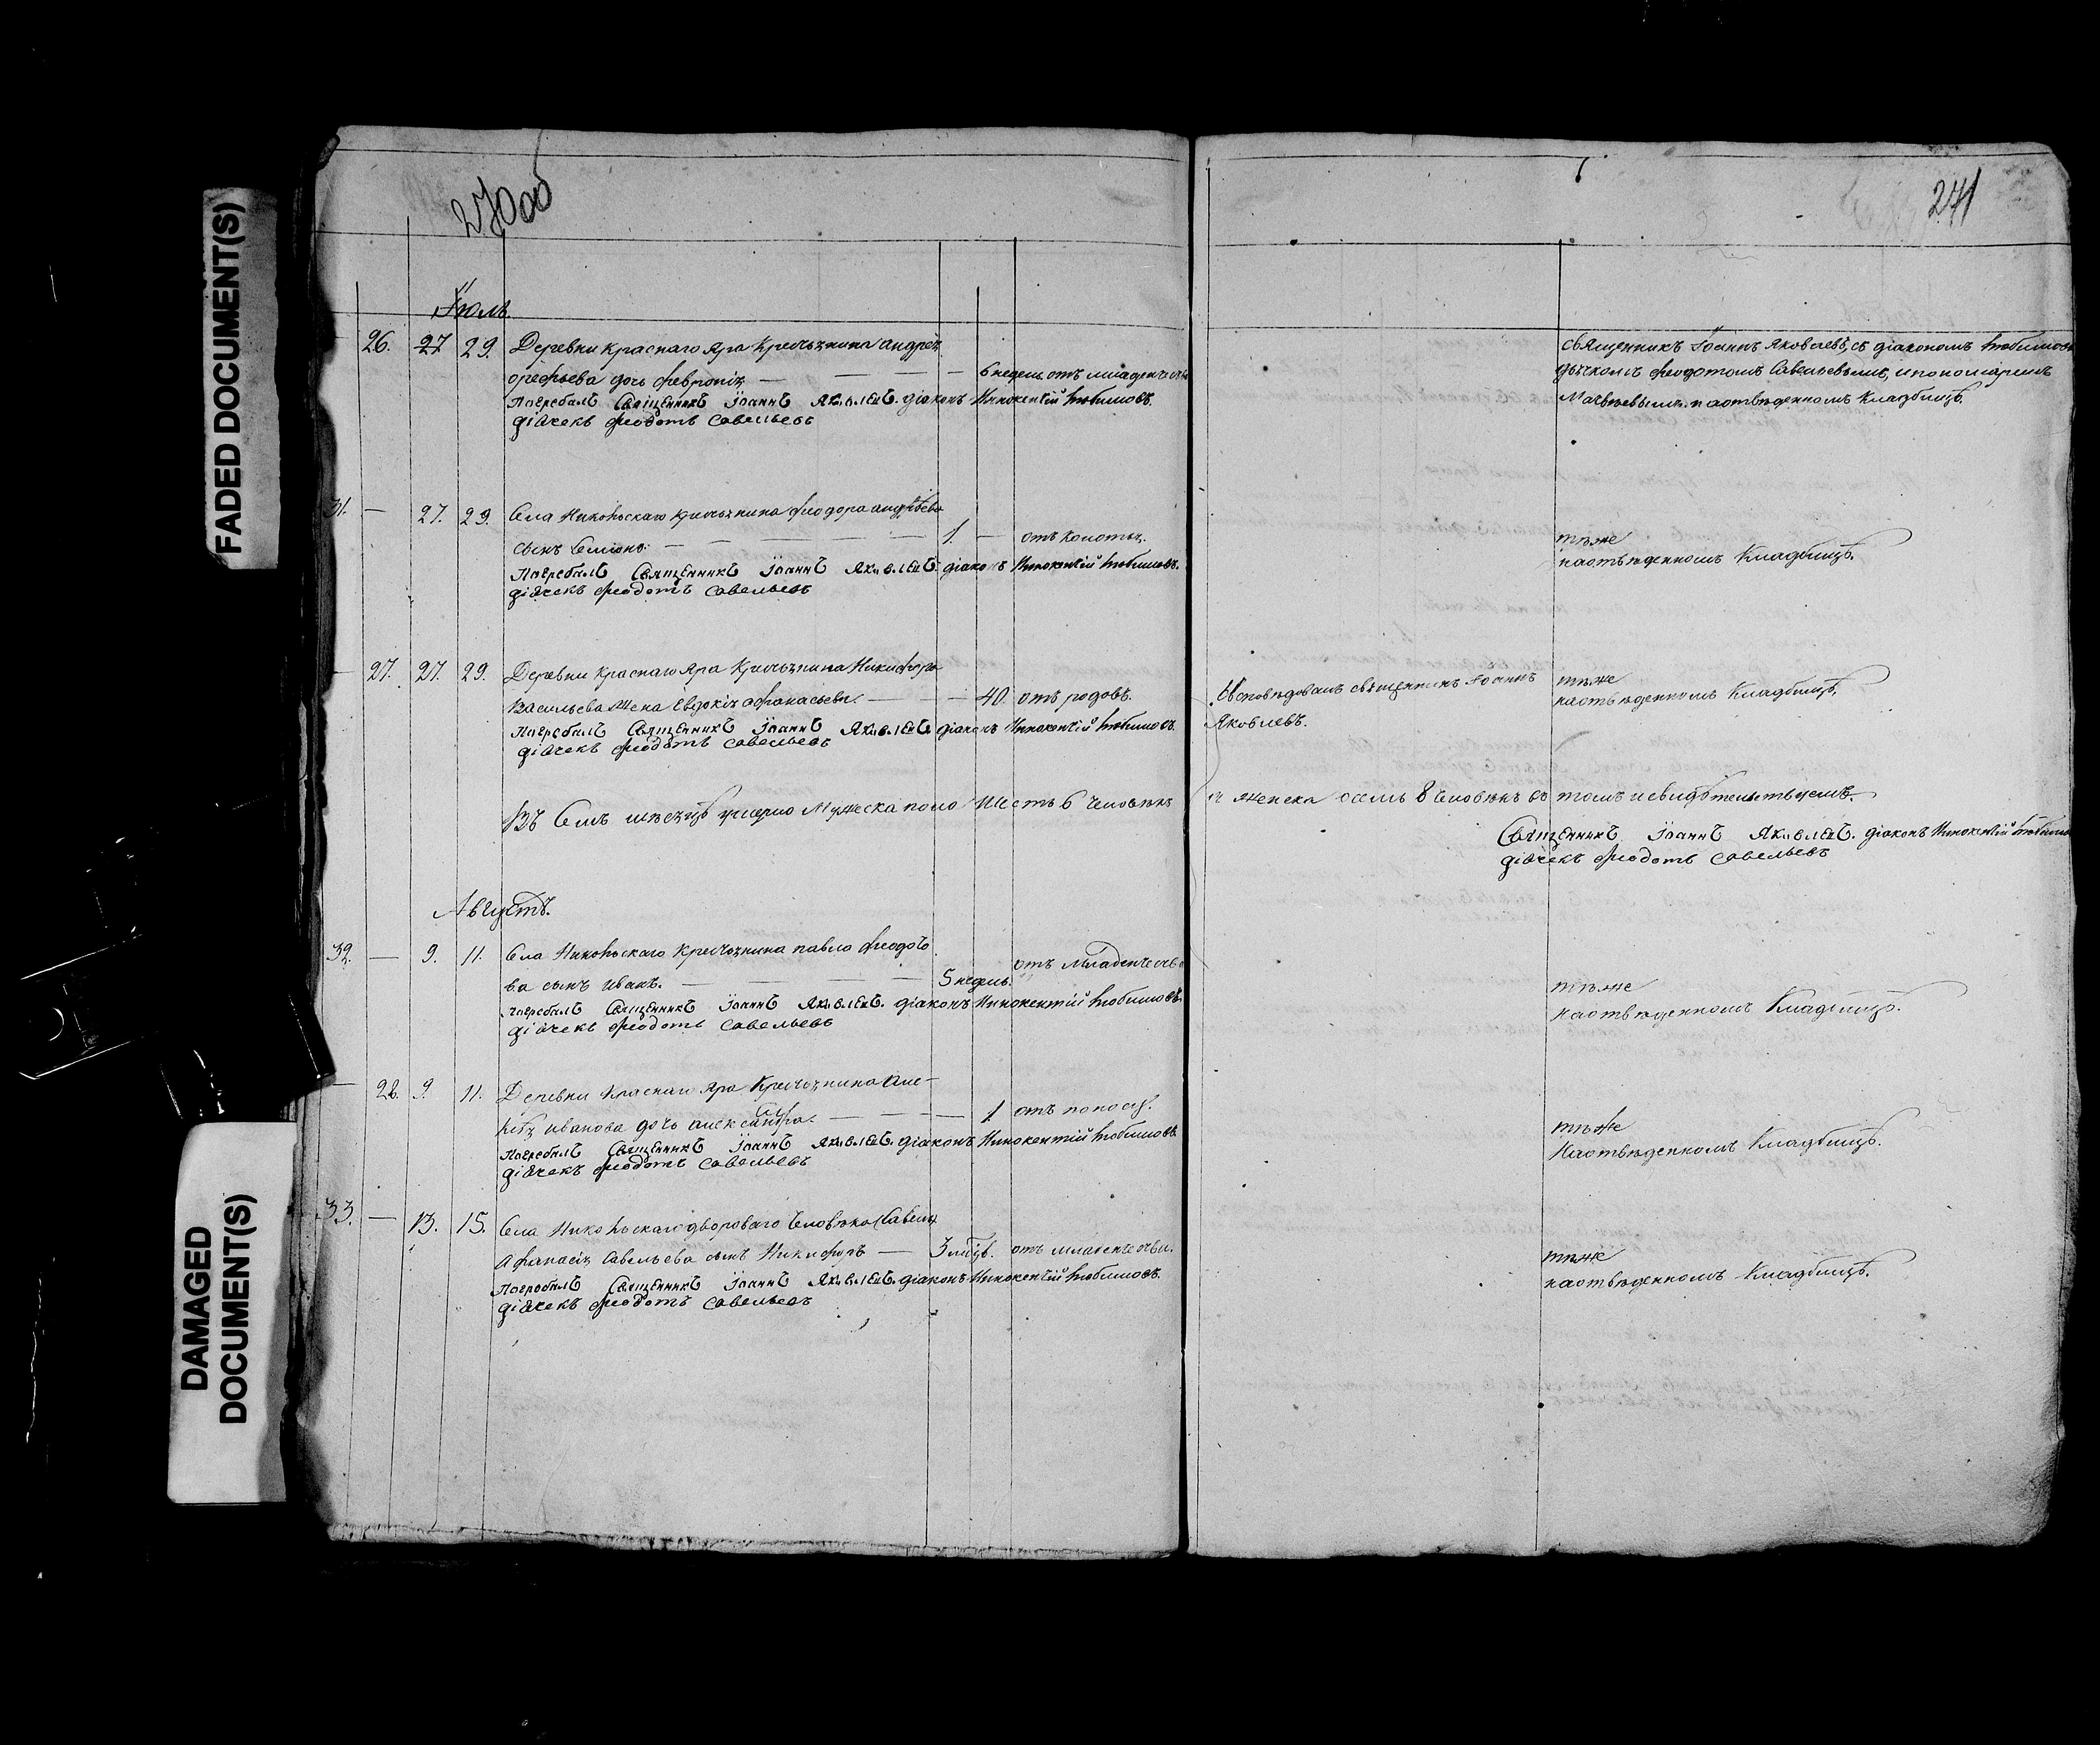 FADED DOCUMENT(S)
DAMAGED
DOCUMENT(S)
270 об
271
Іюль.
26. 27 29. Деревни Краснаго Яра Крестьянина Андрея
Орефьева дочь Феврония — — — — 6 недель отъ младенчества
Погребалъ Священникъ Іоаннъ Яковлевъ. діаконъ Иннокентій Любимовъ.
діячекъ Феодотъ Савельевъ
Священникъ Іоаннъ Яковлевъ, съ діакономъ Любимовымъ
дьячкомъ Феодотомъ Савельевымъ, и пономаремъ
Матвеевымъ. на отведенномъ Кладбищѣ.
31. — 27. 29. Села Никольскаго крестьянина Феодора Андрѣева
сынъ Семіонъ. — — — — — 1. — отъ колотья.
Погребалъ Священникъ Іоаннъ Яковлевъ. діаконъ Иннокентій Любимовъ.
діячекъ Феодотъ Савельевъ
тѣже
на отвѣденномъ Кладбищѣ.
— 27. 27. 29. Деревни Краснаго Яра Крестьянина Никифора
Васильева Жена Евдокія Афанасьева. — — — 40. отъ родовъ.
Погребалъ Священникъ Іоаннъ Яковлевъ діаконъ Иннокентій Любимовъ.
діячекъ Феодотъ Савельевъ
Исповѣдовалъ священникъ Іоаннъ
Яковлевъ.
тѣже
на отвѣденномъ Кладбищѣ.
Въ Семъ мѣсяцѣ умерло Мужеска поло Шесть 6 Человѣкъ и женска осемь 8 Человѣкъ въ томъ и свидѣтельствуемъ.
Священникъ Іоаннъ Яковлевъ. діаконъ Иннокентій Любимовъ
діячекъ Феодотъ Савельевъ
Августъ.
32. — 9. 11. Села Никольскаго Крестьянина Павла Феодото
ва сынъ Иванъ. — — — 5 недель. отъ Младенчества
погребалъ Священникъ Іоаннъ Яковлевъ. діаконъ Иннокентій Любимовъ.
діячекъ Феодотъ Савельевъ
тѣже
на отвѣденномъ Кладбищѣ.
— 28. 9. 11. Деревни Краснаго Яра Крестьянина Але-
ксѣя Иванова дочь Александра. — — — — 1 отъ поносу.
Погребалъ Священникъ Іоаннъ Яковлевъ. діаконъ Иннокентій Любимовъ
діячекъ Феодотъ Савельевъ
тѣже
На отвѣденномъ Кладбищѣ.
33. — 13. 15. Села Никольскаго двороваго Человѣка
Афанасія Савельева сынъ Никифоръ — 3 мѣсяцѣ. отъ младенчества.
Погребалъ Священникъ Іоаннъ Яковлевъ. діаконъ Иннокентій Любимовъ.
діячекъ Феодотъ Савельевъ
тѣже
на отвѣденномъ Кладбищѣ.